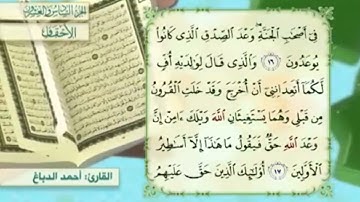 الجزء السادس والعشرون
الأحقاف
فِىٓ أَصْحَٰبِ ٱلْجَنَّةِ ۖ وَعْدَ ٱلصِّدْقِ ٱلَّذِى كَانُوا۟
يُوعَدُونَ ١٦ وَٱلَّذِى قَالَ لِوَٰلِدَيْهِ أُفٍّ
لَّكُمَآ أَتَعِدَانِنِىٓ أَنْ أُخْرَجَ وَقَدْ خَلَتِ ٱلْقُرُونُ
مِن قَبْلِى وَهُمَا يَسْتَغِيثَانِ ٱللَّهَ وَيْلَكَ ءَامِنْ إِنَّ
وَعْدَ ٱللَّهِ حَقٌّ فَيَقُولُ مَا هَٰذَآ إِلَّآ أَسَٰطِيرُ
ٱلْأَوَّلِينَ ١٧ أُو۟لَٰٓئِكَ ٱلَّذِينَ حَقَّ عَلَيْهِمُ
القارئ: أحمد الدباغ